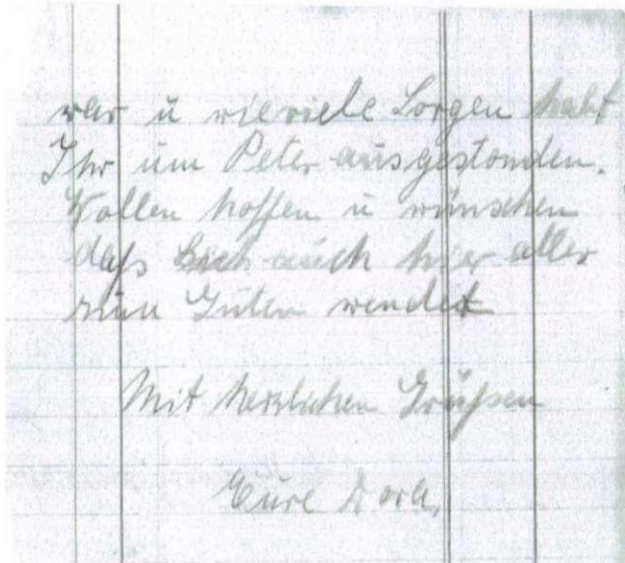 war u wieviele Sorgen habt
Ihr um Peter ausgestanden.
Wollen hoffen u wünschen
daß sich auch hier alles
zum Guten wendet
Mit herzlichen Grüßen
Eure Dora,